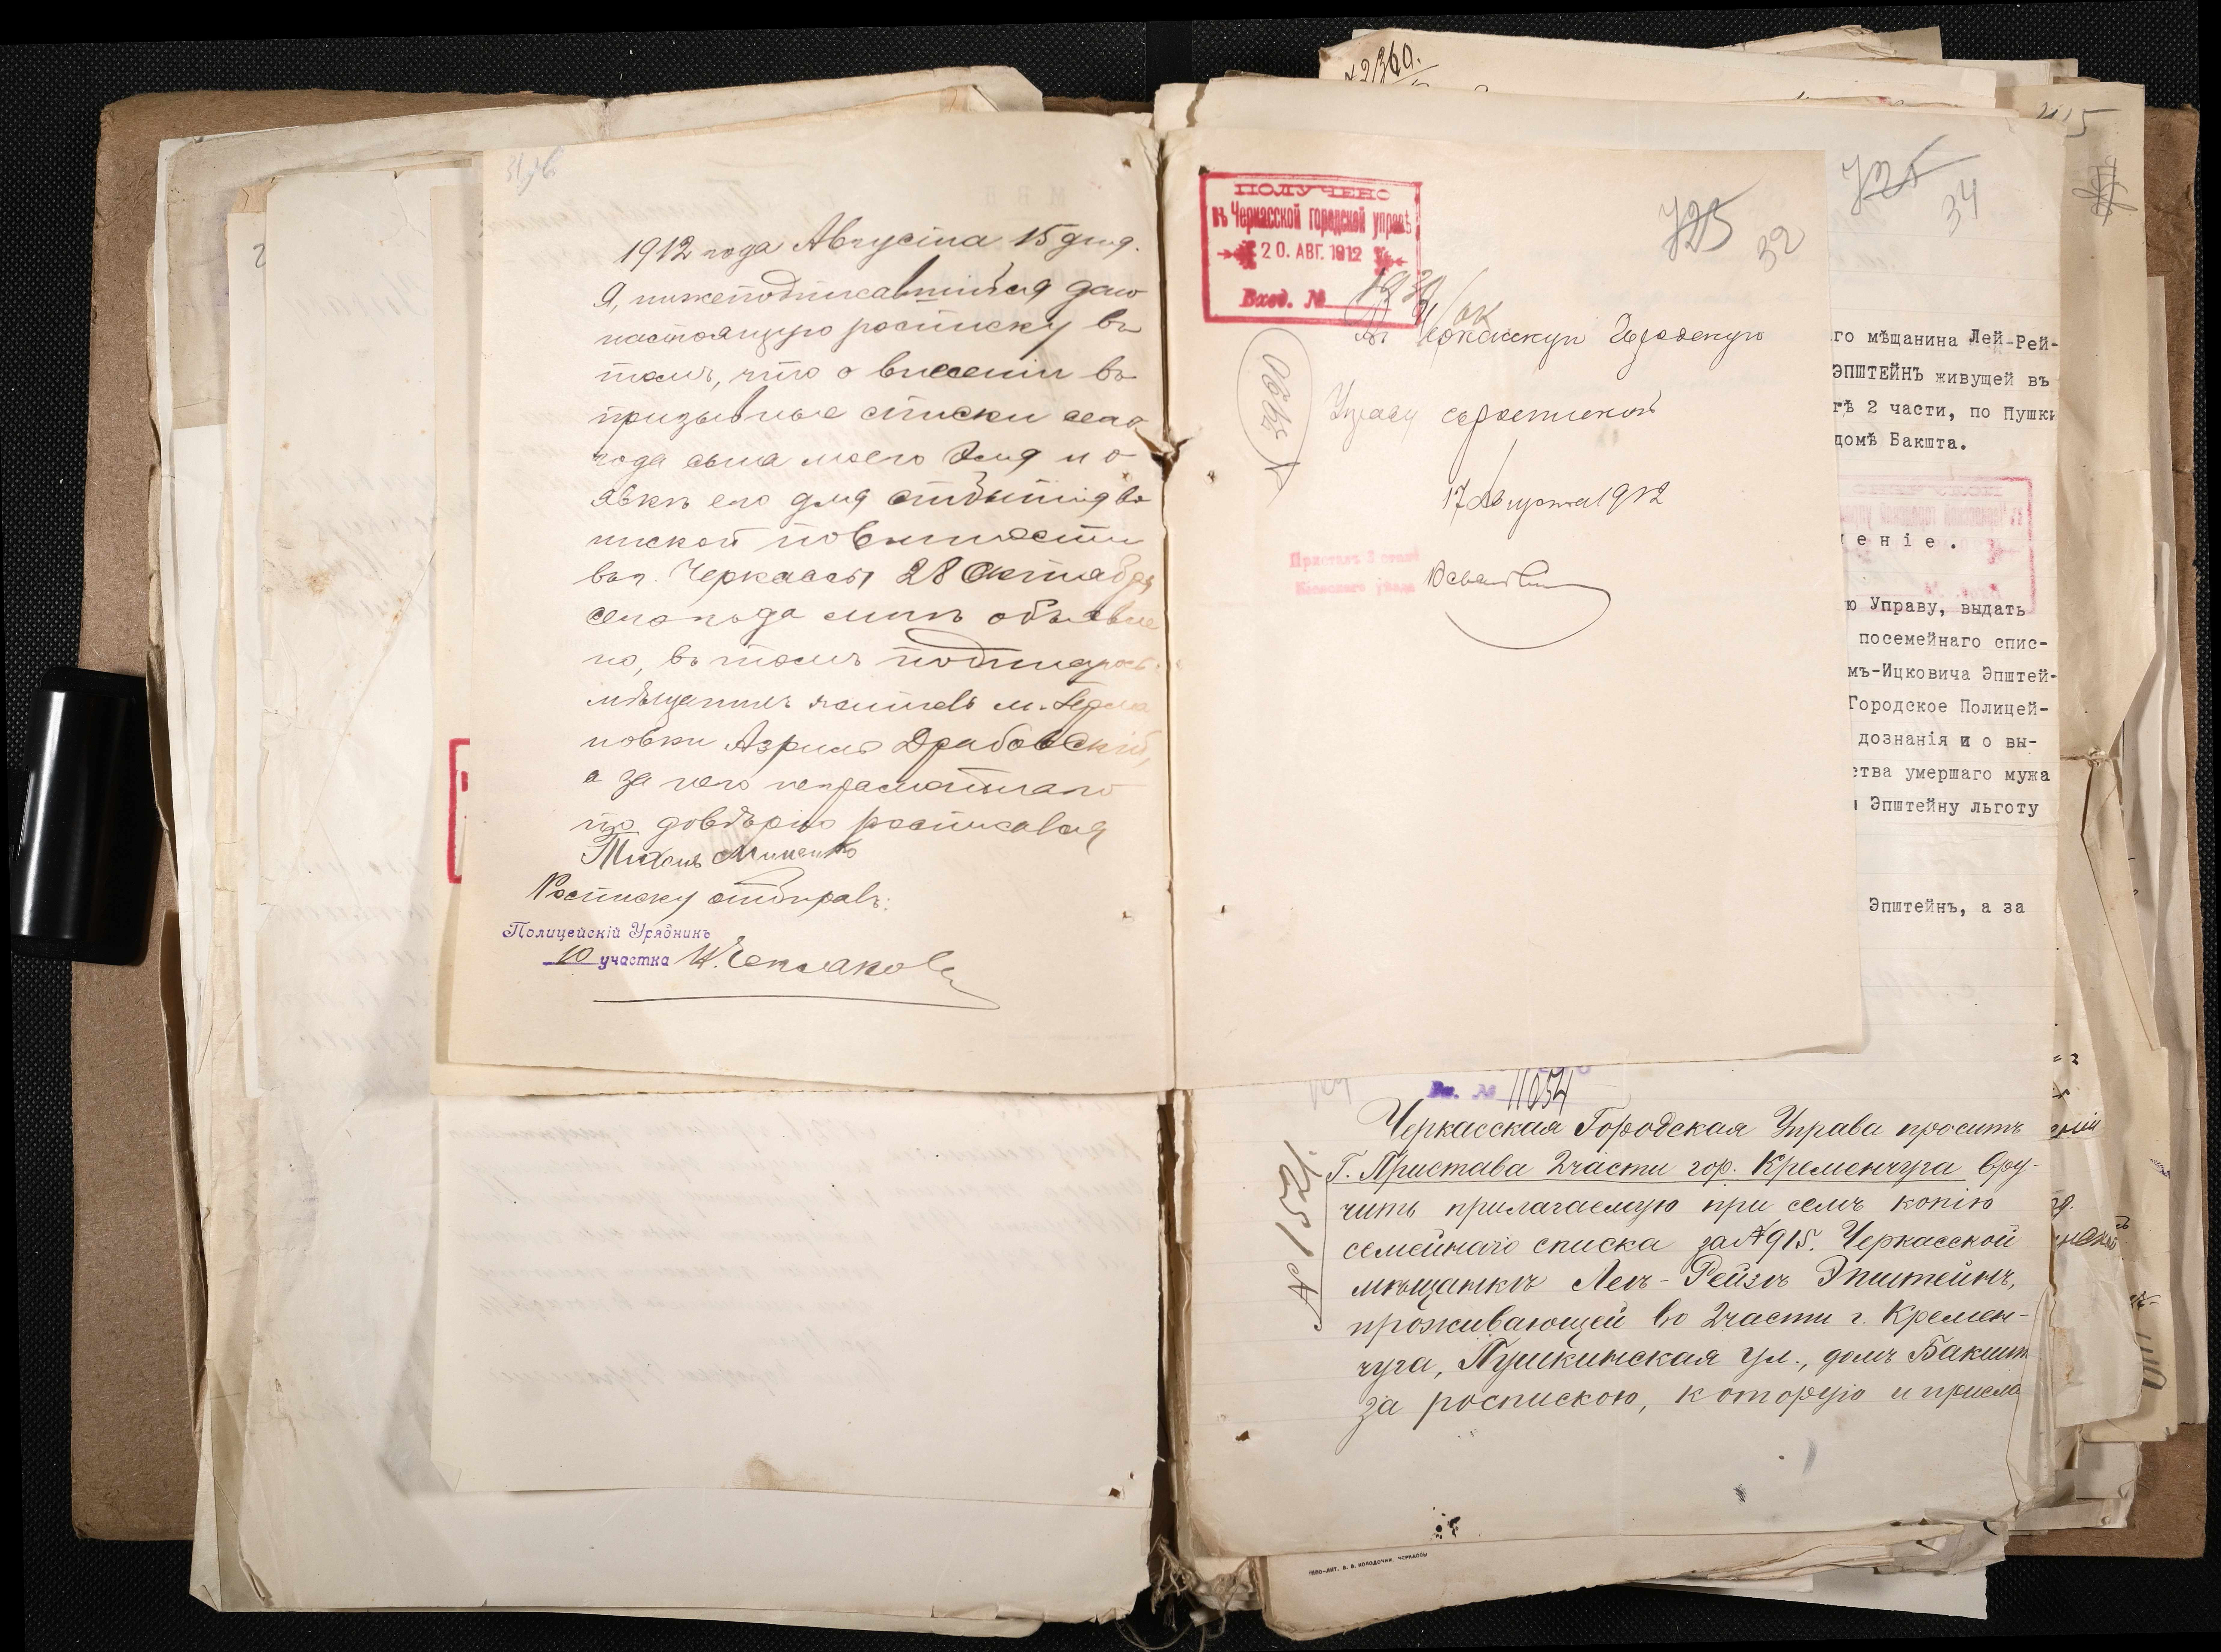 1912 года Августа 15 дня.
Я, нижеподписавшійся даю
настоящую росписку въ
томъ, что о внесеніи въ
призывные списки сего
года сына моего и о
явкѣ его для отбытія во
инской повинности
въ г. Черкассы 28 Октября
сего года мнѣ объявле
но, въ томъ подпи
мѣщанинъ м.
новки Азриль Драбовскій,
а за него неграмотнаго
по довѣрію росписался
Тихонъ
Росписку отбиралъ:
Полицейскій Урядникъ
10 участка
ПОЛУЧЕНО
въ Черкасской городской управѣ
20. АВГ. 1912
Вход. №
725
32
Въ Черкасскую Городскую
Управу съ роспиской
17 Августа 1912
Приставъ 3 стана
уѣзда
725
34
го мѣщанина Лей-Рей-
ЭПШТЕЙНЪ живущей въ
гѣ 2 части, по Пушки
домѣ Бакшта.
еніе.
ю Управу, выдать
посемейнаго спис-
мъ-Ицковича Эпштей-
Городское Полицей-
дознанія и о вы-
ства умершаго мужа
Эпштейну льготу
Эпштейнъ, а за
Вх. № 11054
Черкасская Городская Управа проситъ
Г. Пристава 2 части гор. Кременчуга вру-
чить прилагаемую при семъ копію
семейнаго списка за № 915. Черкасской
мѣщанкѣ Леѣ-Рейзѣ Эпштейнъ,
проживающей во 2 части г. Кремен-
чуга, Пушкинская ул., домъ Бакшт
за роспискою, которую и присла
№ 1521.
ипо-лит. В. В. Колодочки, Черкассы